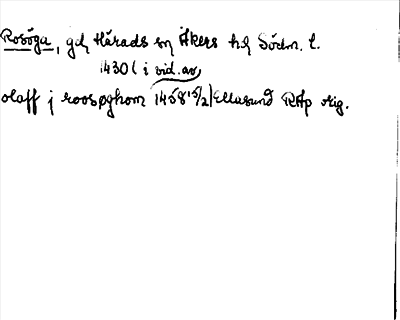 Rosöga, gd Härads sn Åkers hd Södm. l.
1430 ( i vid. av
olaff j roosøghom 1458 15/2 Ellasund RAp orig.